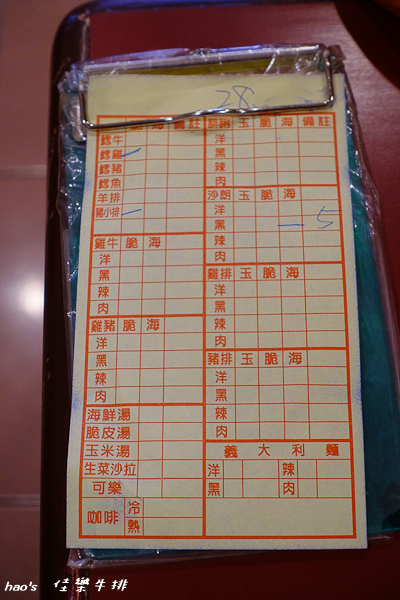 28
海 備註
鱈牛
鱈雞
鱈豬
鱈魚
羊排
豬小排
雞牛 脆 海
洋
黑
辣
肉
雞豬 脆 海
洋
黑
辣
肉
海鮮湯
脆皮湯
玉米湯
生菜沙拉
可樂
咖啡 冷
熱
玉 脆 海 備註
洋
黑
辣
肉
沙朗 玉 脆 海
洋
黑 一 5
辣
肉
雞排 玉 脆 海
洋
黑
辣
肉
豬排 玉 脆 海
洋
黑
辣
肉
義大利麵
洋 辣
黑 肉
hao's 佳樂牛排